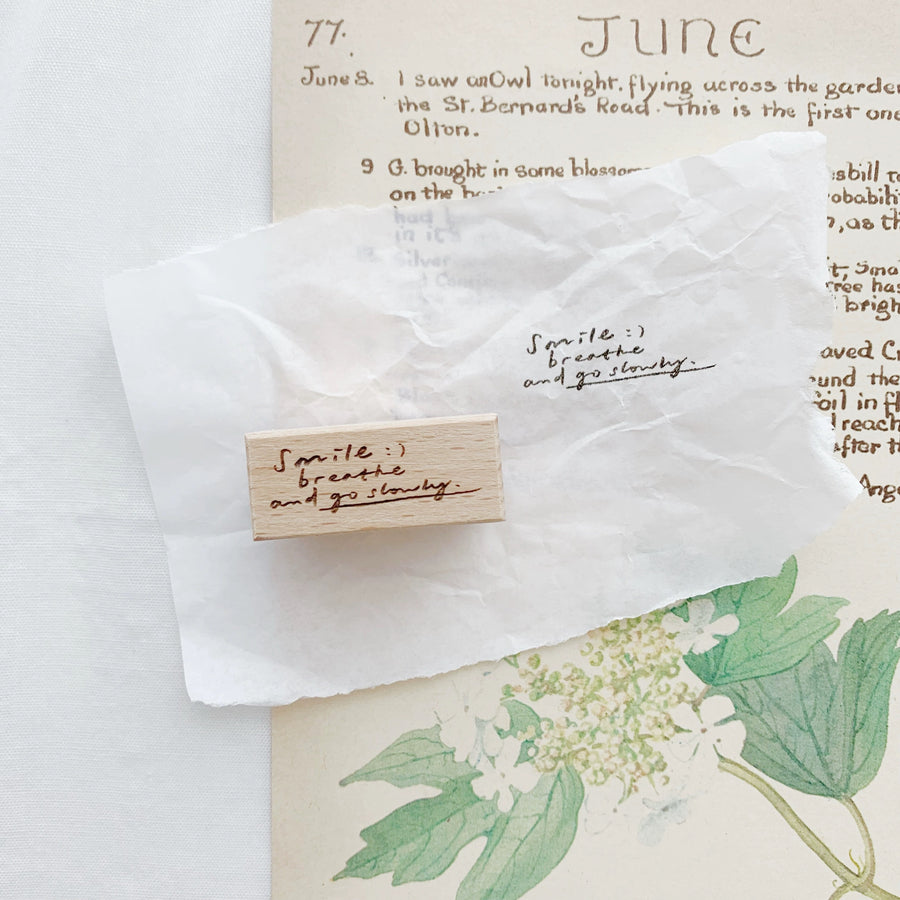 77.
JUNE
June 8. I saw an Owl tonight, flying across the garden
the St. Bernard's Road. This is the first one
Olton.
9 G. brought in some blossom
on the
had
in it's
Silver
sbill
as th
Smal
ree has
brigh
aved Cr
und the
oil in fl
reach
after
Ange
Smile :)
breathe
and go slowly.
Smile :)
breathe
and go slowly.